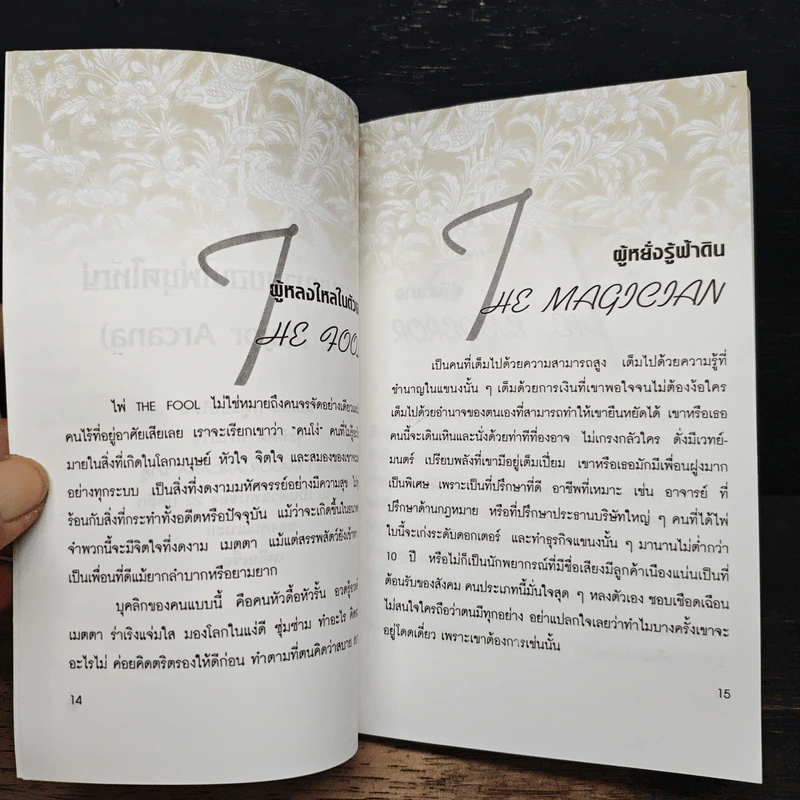 ผู้หลงใหลในตัวเ
THE FOOL
ไพ่ THE FOOL ไม่ใช่หมายถึงคนจรจัดอย่างเดียว
คนไร้ที่อยู่อาศัยเสียเลย เราจะเรียกเขาว่า "คนโง่" คนที่ไม่รู้
มายในสิ่งที่เกิดในโลกมนุษย์ หัวใจ จิตใจ และสมองของเขา
อย่างทุกระบบ เป็นสิ่งที่งดงามมหัศจรรย์อย่างมีความสุข
ร้อนกับสิ่งที่กระทำทั้งอดีตหรือปัจจุบัน แม้ว่าจะเกิดขึ้นใน
จำพวกนี้จะมีจิตใจที่งดงาม เมตตา แม้แต่สรรพสัตว์ยังเข้า
เป็นเพื่อนที่ดีแม้ยากลำบากหรือยามยาก
บุคลิกของคนแบบนี้ คือคนหัวดื้อหัวรั้น อวดรู้
เมตตา ร่าเริงแจ่มใส มองโลกในแง่ดี ซุ่มซ่าม ทำอะไร
อะไรไม่ ค่อยคิดตริตรองให้ดีก่อน ทำตามที่ตนคิดว่าสบาย
14
ผู้หยั่งรู้ฟ้าดิน
THE MAGICIAN
เป็นคนที่เต็มไปด้วยความสามารถสูง เต็มไปด้วยความรู้ที่
ชำนาญในแขนงนั้น ๆ เต็มด้วยการเงินที่เขาพอใจจนไม่ต้องง้อใคร
เต็มไปด้วยอำนาจของตนเองที่สามารถทำให้เขายืนหยัดได้ เขาหรือเธอ
คนนี้จะเดินเหินและนั่งด้วยท่าทีที่องอาจ ไม่เกรงกลัวใคร ดั่งมีเวทย์-
มนตร์ เปรียบพลังที่เขามีอยู่เต็มเปี่ยม เขาหรือเธอมักมีเพื่อนฝูงมาก
เป็นพิเศษ เพราะเป็นที่ปรึกษาที่ดี อาชีพที่เหมาะ เช่น อาจารย์ ที่
ปรึกษาด้านกฎหมาย หรือที่ปรึกษาประธานบริษัทใหญ่ ๆ คนที่ได้ไพ่
ใบนี้จะเก่งระดับดอกเตอร์ และทำธุรกิจแขนงนั้น ๆ มานานไม่ต่ำกว่า
10 ปี หรือไม่ก็เป็นนักพยากรณ์ที่มีชื่อเสียงมีลูกค้าเนืองแน่นเป็นที่
ต้อนรับของสังคม คนประเภทนี้มั่นใจสุด ๆ หลงตัวเอง ชอบเชือดเฉือน
ไม่สนใจใครถือว่าตนมีทุกอย่าง อย่าแปลกใจเลยว่าทำไมบางครั้งเขาจะ
อยู่โดดเดี่ยว เพราะเขาต้องการเช่นนั้น
15